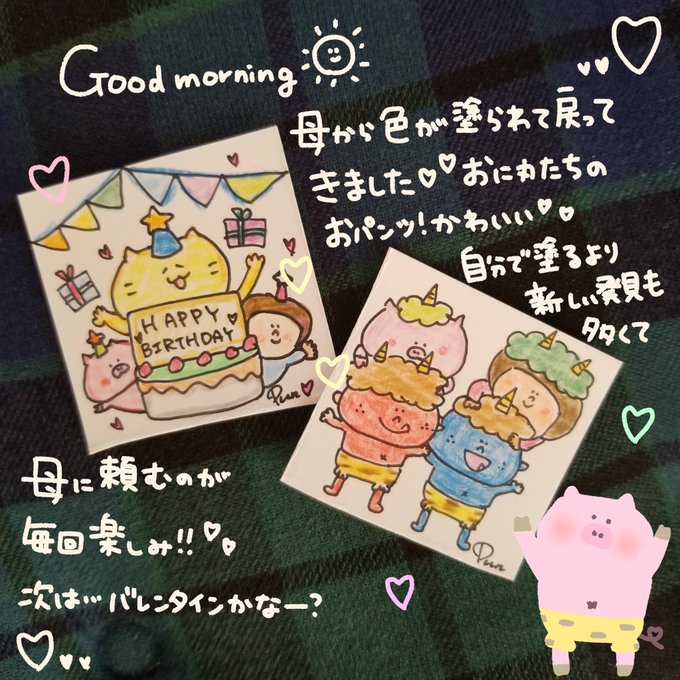 Good morning
母から色が塗られて戻って
きました♡♡おに丸たちの
おパンツ!かわいい♡。
自分で塗るより
新しい発見も
多くて
HAPPY
BIRTHDAY
母に頼むのが
毎回楽しみ!!♡。
次は…バレンタインかなー?